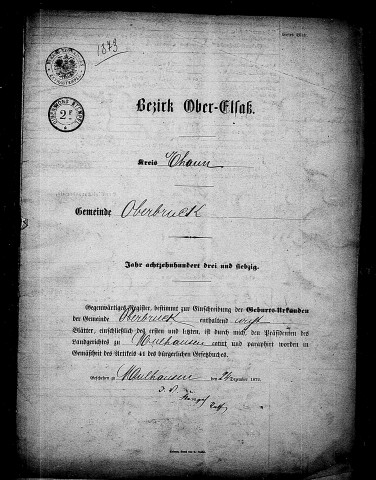 1873
2 F
Bezirk Ober-Elsaß.
Kreis Thann
Gemeinde Oberbruck
Jahr achtzehnhundert drei und siebzig.
Gegenwärtiges Register, bestimmt zur Einschreibung der Geburts-Urkunden
der Gemeinde Oberbruck enthaltend
Blätter, einschließlich des ersten und letzten, ist durch mich, den Präsidenten des
Landgerichts zu Mülhausen cotirt und paraphirt worden in
Gemäßheit des Artikels 41 des bürgerlichen Gesetzbuches.
Geschehen zu Mülhausen den 24 Dezember 1872.